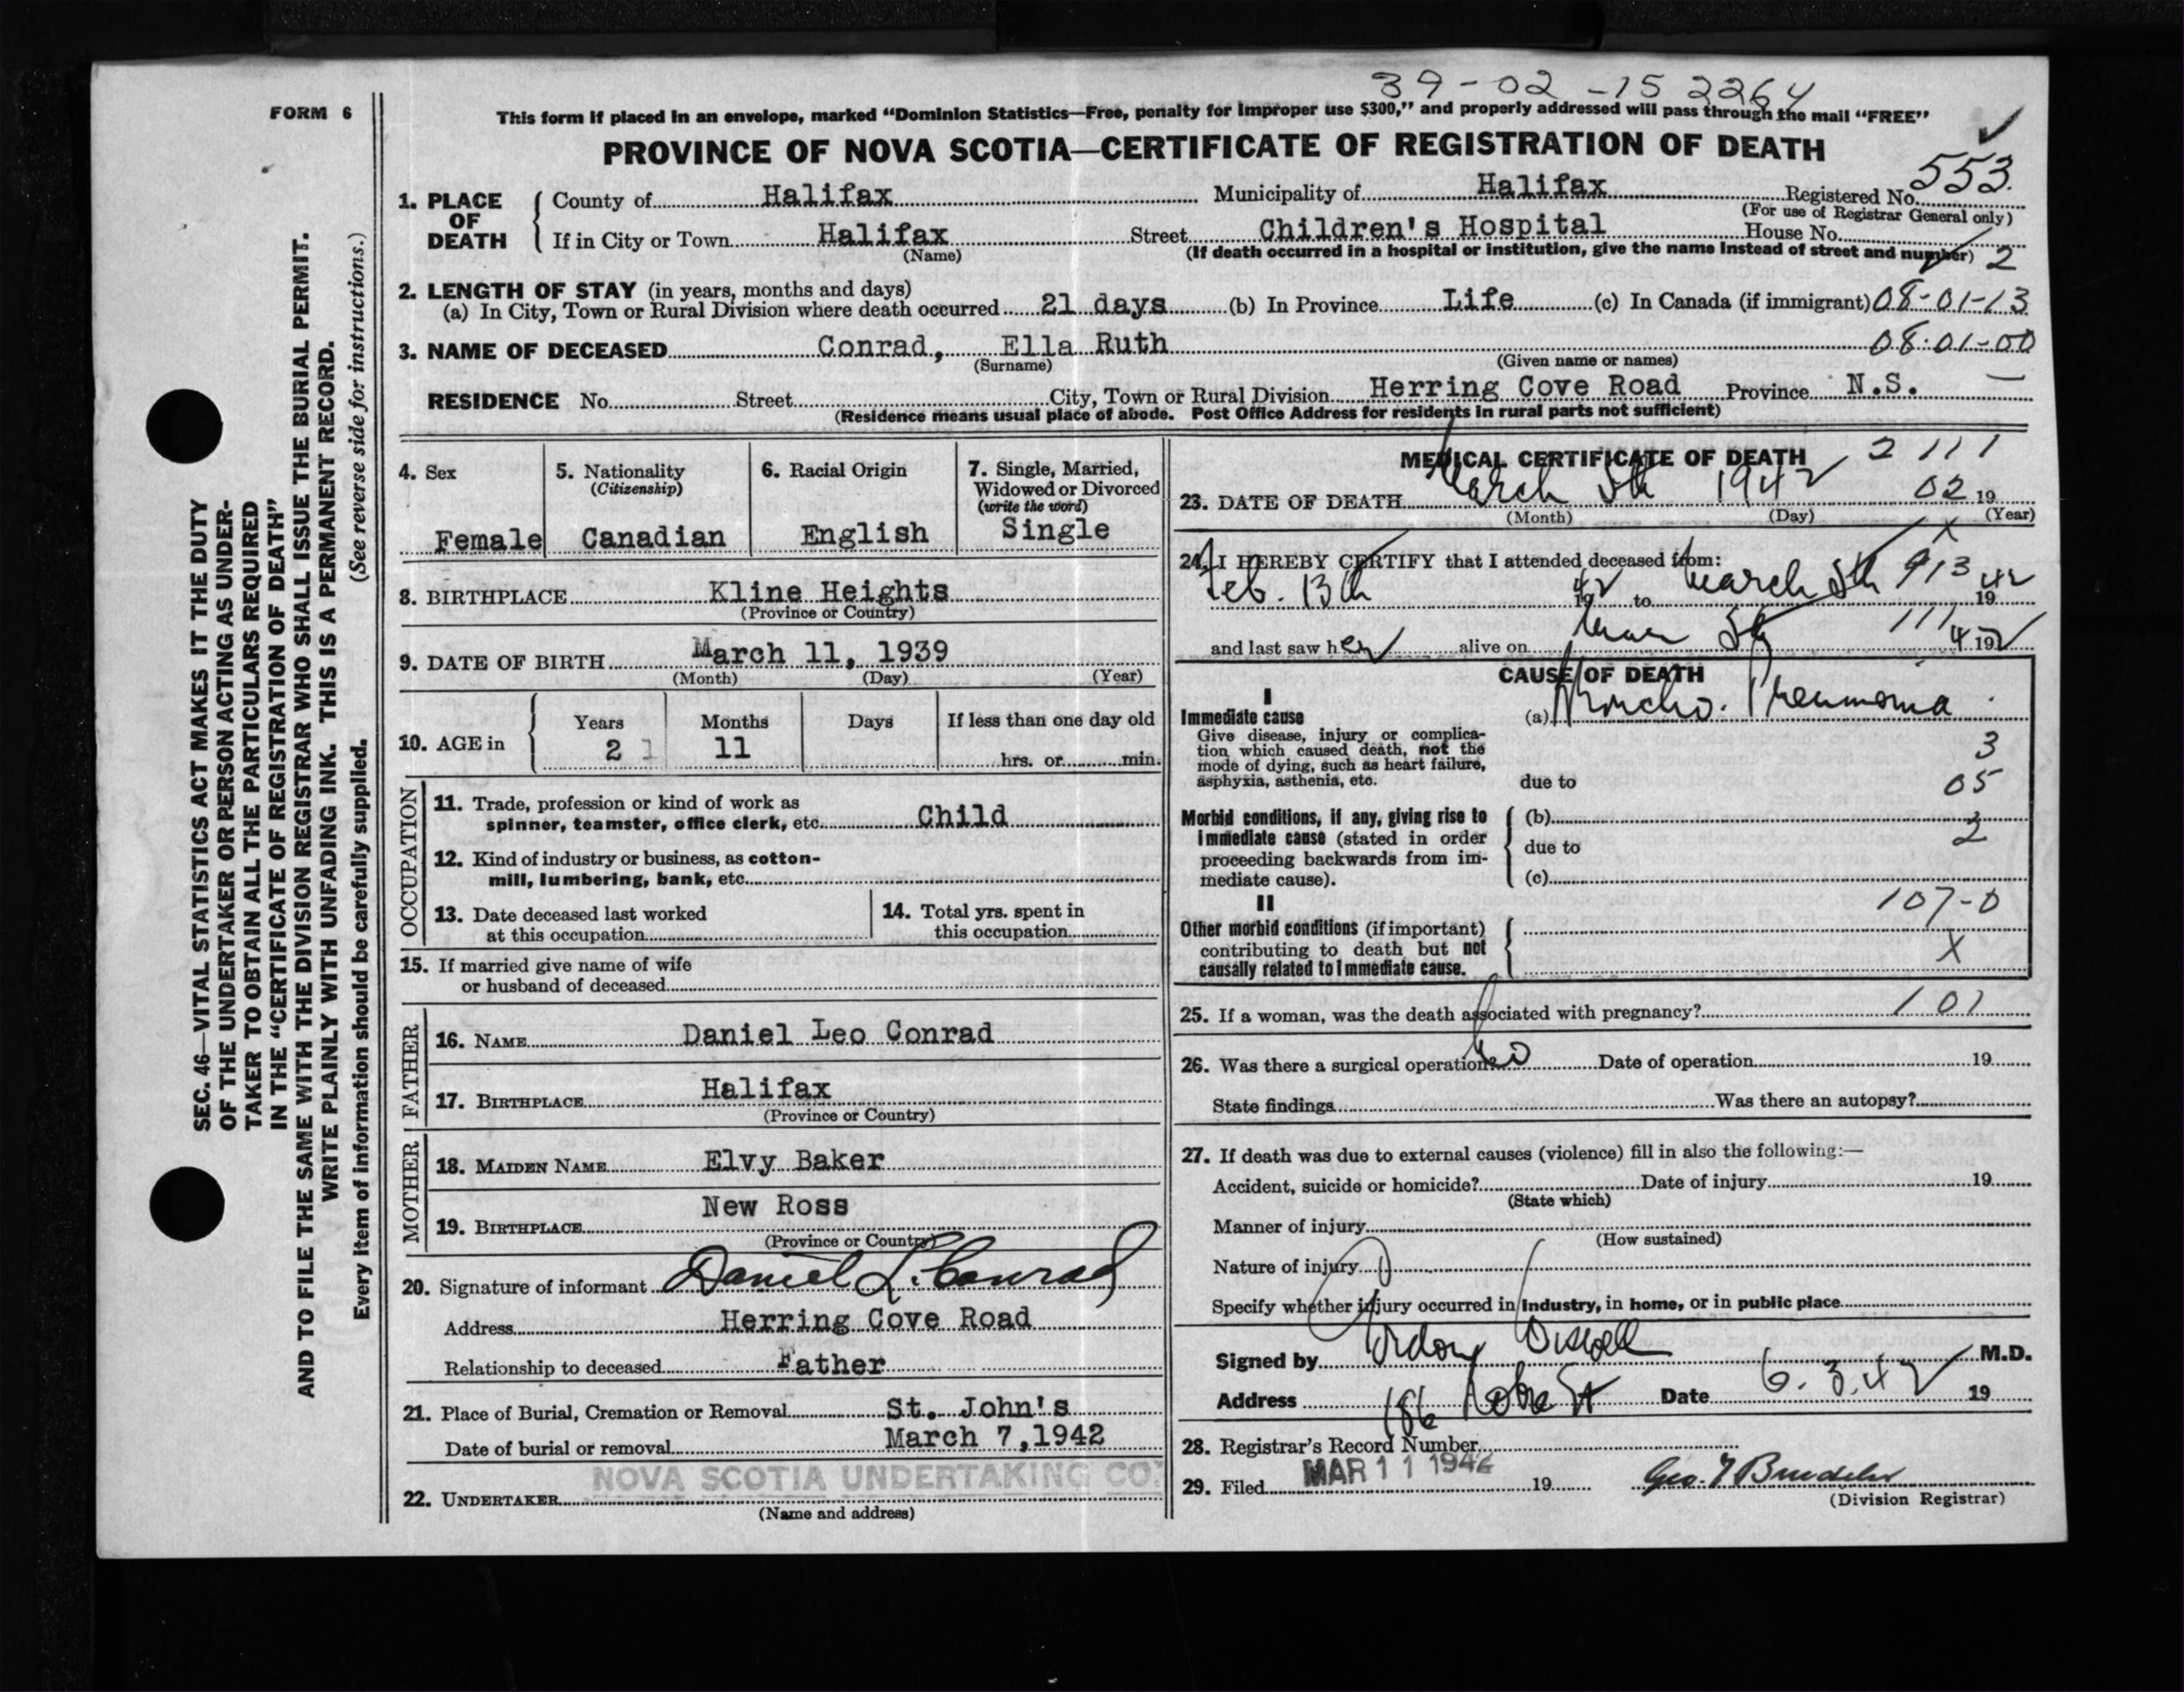 39-02-15 2264
FORM 6
This form if placed in an envelope, marked “Dominion Statistics—Free, penalty for improper use $300,” and properly addressed will pass through the mail “FREE”
PROVINCE OF NOVA SCOTIA—CERTIFICATE OF REGISTRATION OF DEATH
1. PLACE OF DEATH
County of Halifax Municipality of Halifax Registered No. 553.
(For use of Registrar General only)
If in City or Town Halifax Street Children's Hospital House No.
(Name) (If death occurred in a hospital or institution, give the name instead of street and number) 2
2. LENGTH OF STAY (in years, months and days)
(a) In City, Town or Rural Division where death occurred 21 days (b) In Province Life (c) In Canada (if immigrant) 08-01-13
3. NAME OF DECEASED Conrad, Ella Ruth 08-01-00
(Surname) (Given name or names)
RESIDENCE No. Street City, Town or Rural Division Herring Cove Road Province N.S. —
(Residence means usual place of abode. Post Office Address for residents in rural parts not sufficient)
4. Sex
Female
5. Nationality
(Citizenship)
Canadian
6. Racial Origin
English
7. Single, Married,
Widowed or Divorced
(write the word)
Single
8. BIRTHPLACE Kline Heights
(Province or Country)
9. DATE OF BIRTH March 11, 1939
(Month) (Day) (Year)
10. AGE in
Years Months Days If less than one day old
2 11 hrs. or min.
OCCUPATION
11. Trade, profession or kind of work as
spinner, teamster, office clerk, etc. Child
12. Kind of industry or business, as cotton-
mill, lumbering, bank, etc.
13. Date deceased last worked
at this occupation
14. Total yrs. spent in
this occupation
15. If married give name of wife
or husband of deceased
FATHER
16. NAME Daniel Leo Conrad
17. BIRTHPLACE Halifax
(Province or Country)
MOTHER
18. MAIDEN NAME Elvy Baker
19. BIRTHPLACE New Ross
(Province or Country)
20. Signature of informant Daniel L. Conrad
Address Herring Cove Road
Relationship to deceased Father
21. Place of Burial, Cremation or Removal St. John's
Date of burial or removal March 7,1942
22. UNDERTAKER NOVA SCOTIA UNDERTAKING CO.
(Name and address)
MEDICAL CERTIFICATE OF DEATH 2 111
23. DATE OF DEATH March 5th 1942 02 19
(Month) (Day) (Year)
x
24. I HEREBY CERTIFY that I attended deceased from:
Feb. 13th 1942 to March 5th 913 1942
and last saw her alive on Mar 5th 111 42 19
CAUSE OF DEATH
I
Immediate cause
Give disease, injury or complica-
tion which caused death, not the
mode of dying, such as heart failure,
asphyxia, asthenia, etc.
(a) Broncho. Pneumonia
3
due to 05
Morbid conditions, if any, giving rise to
immediate cause (stated in order
proceeding backwards from im-
mediate cause).
(b)
2
due to
(c)
107-0
II
Other morbid conditions (if important)
contributing to death but not
causally related to immediate cause.
X
25. If a woman, was the death associated with pregnancy? 101
26. Was there a surgical operation No Date of operation 19
State findings Was there an autopsy?
27. If death was due to external causes (violence) fill in also the following:—
Accident, suicide or homicide? Date of injury 19
(State which)
Manner of injury
(How sustained)
Nature of injury
Specify whether injury occurred in industry, in home, or in public place
Signed by Gordon M.D.
Address 186 St Date 6.3.42 19
28. Registrar's Record Number
29. Filed MAR 11 1942 19 Geo.
(Division Registrar)
SEC. 46—VITAL STATISTICS ACT MAKES IT THE DUTY
OF THE UNDERTAKER OR PERSON ACTING AS UNDER-
TAKER TO OBTAIN ALL THE PARTICULARS REQUIRED
IN THE “CERTIFICATE OF REGISTRATION OF DEATH”
AND TO FILE THE SAME WITH THE DIVISION REGISTRAR WHO SHALL ISSUE THE BURIAL PERMIT.
WRITE PLAINLY WITH UNFADING INK. THIS IS A PERMANENT RECORD.
Every item of information should be carefully supplied. (See reverse side for instructions.)